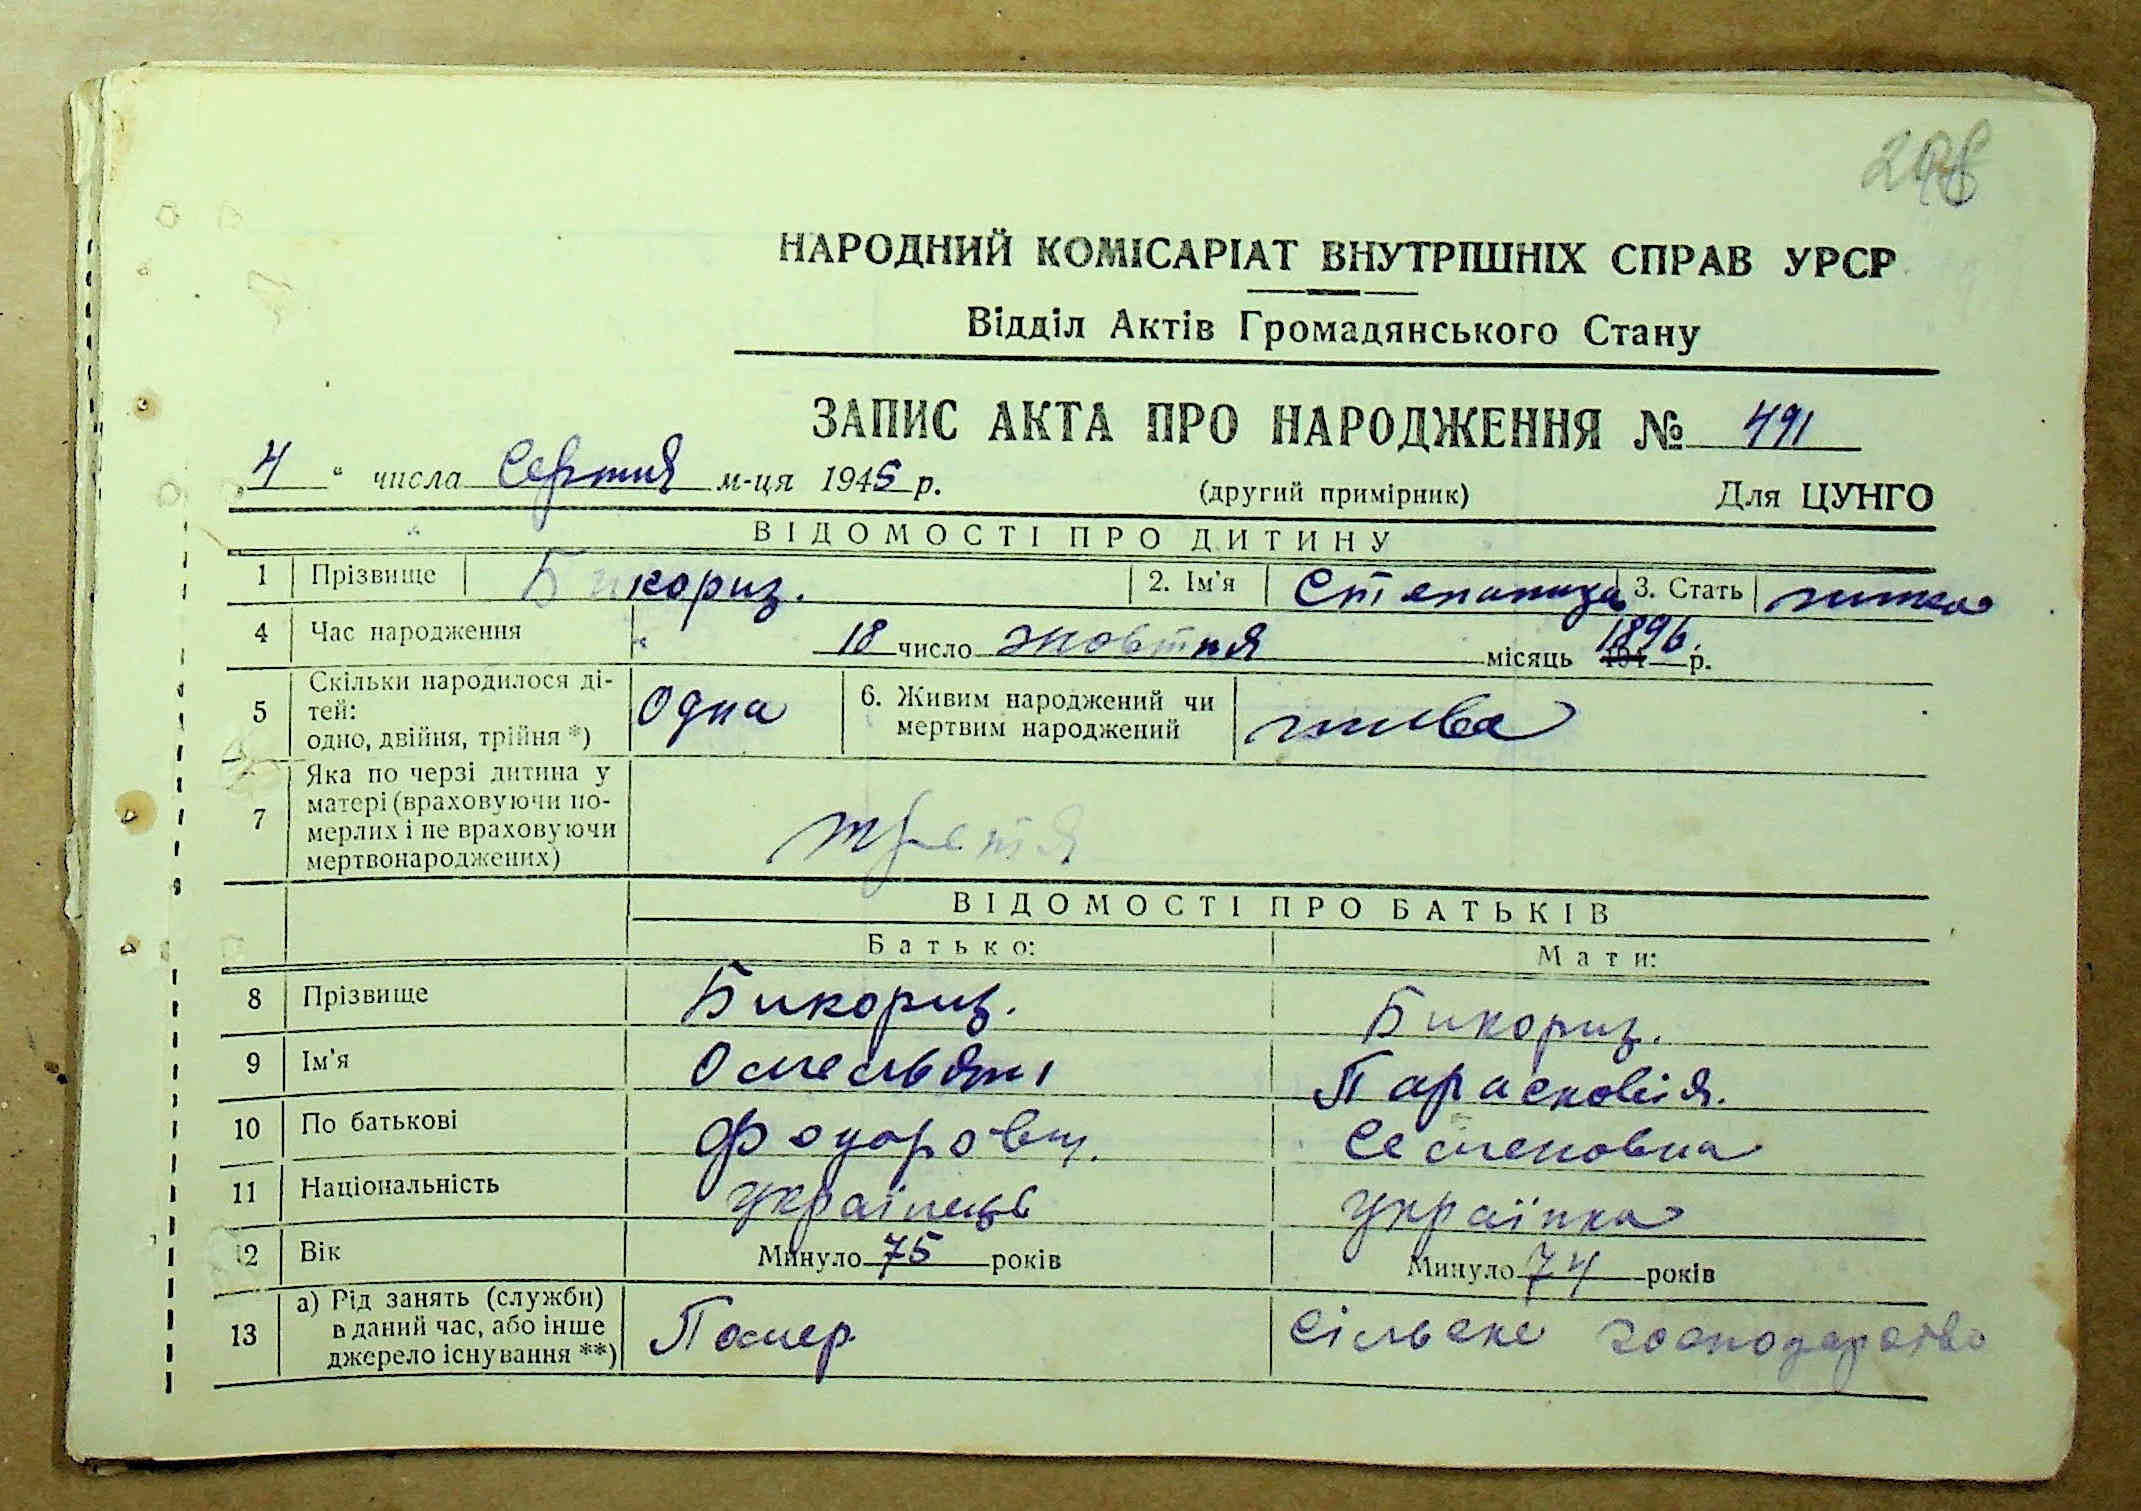 НАРОДНИЙ КОМІСАРІАТ ВНУТРІШНІХ СПРАВ УРСР
Відділ Актів Громадянського Стану
ЗАПИС АКТА ПРО НАРОДЖЕННЯ № 491
„4“ числа Серпня м-ця 1945 р. (другий примірник) Для ЦУНГО
ВІДОМОСТІ ПРО ДИТИНУ
1 Прізвище Бикориз. 2. Ім'я Степанида 3. Стать жінка
4 Час народження 18 число жовтня місяць 1896 р.
5 Скільки народилося ді-
тей:
одно, двійня, трійня *) Одна 6. Живим народжений чи
мертвим народжений жива
7 Яка по черзі дитина у
матері (враховуючи по-
мерлих і не враховуючи
мертвонароджених) третя
ВІДОМОСТІ ПРО БАТЬКІВ
Батько: Мати:
8 Прізвище Бикориз. Бикориз.
9 Ім'я Омельян Парасковія.
10 По батькові Семеновна
11 Національність українець українка
12 Вік Минуло 75 років Минуло 74 років
13 а) Рід занять (служби)
в даний час, або інше
джерело існування **) Помер Сільське господарство